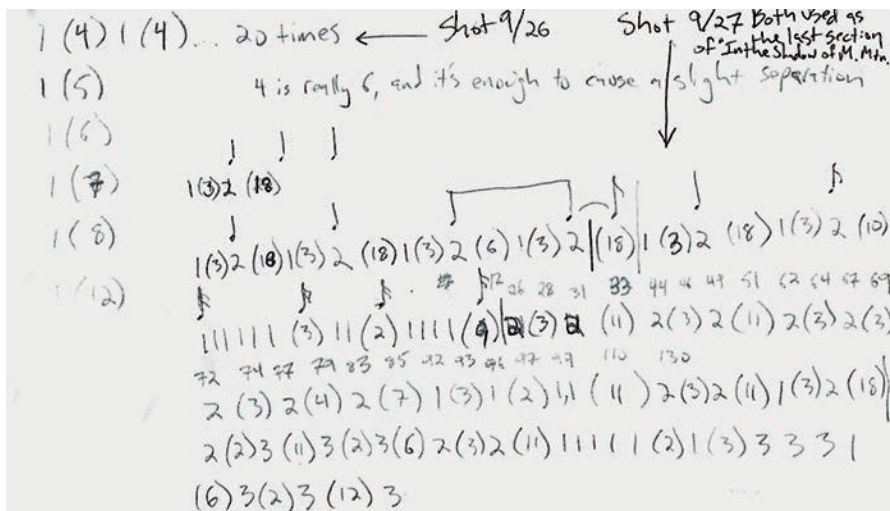 1 (4) 1 (4)... 20 times ← Shot 9/26 Shot 9/27 Both used as
the last section
of "In the Shadow of M. Mtn.
1 (5) 4 is really 6, and it's enough to cause a slight separation
1 (6)
1 (7) 1(3)2 (18)
1 (8)
1(3)2(18)1(3)2 (18)1(3)2(6)1(3)2 (18)1(3)2 (18)1(3)2(10)
1 (12)
26 28 31 33 44 46 49 51 62 64 67 69
11111 (3) 11(2) 1111( (3) (11) 2(3)2(11) 2(3)2(3)
72 74 77 79 83 85 92 93 96 97 99 110 130
2(3)2(4)2(7) 1(3)1(2)1,1 (11) 2(3)2(11)1(3)2(18)
2(2)3(11)3(2)3(6)2(3)2(11)11111(2)1(3)3 3 3 1
(6)3(2)3(12)3